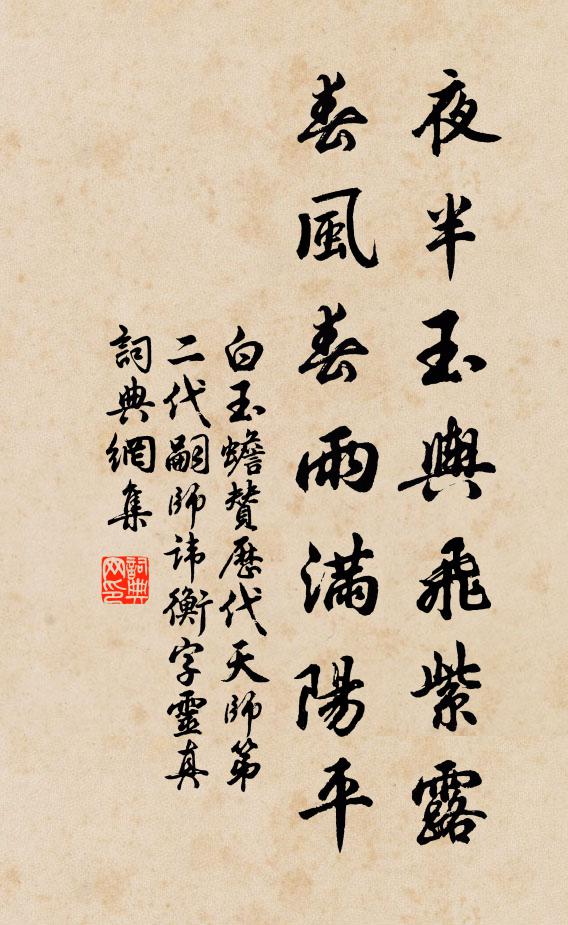 夜半玉輿飛紫露
春風春雨滿陽平
白玉蟾贊歷代天師第
二代嗣師諱衡字靈真
詞典網集
詞典網印